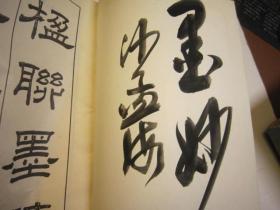 墨妙
沙孟海
楹聯墨